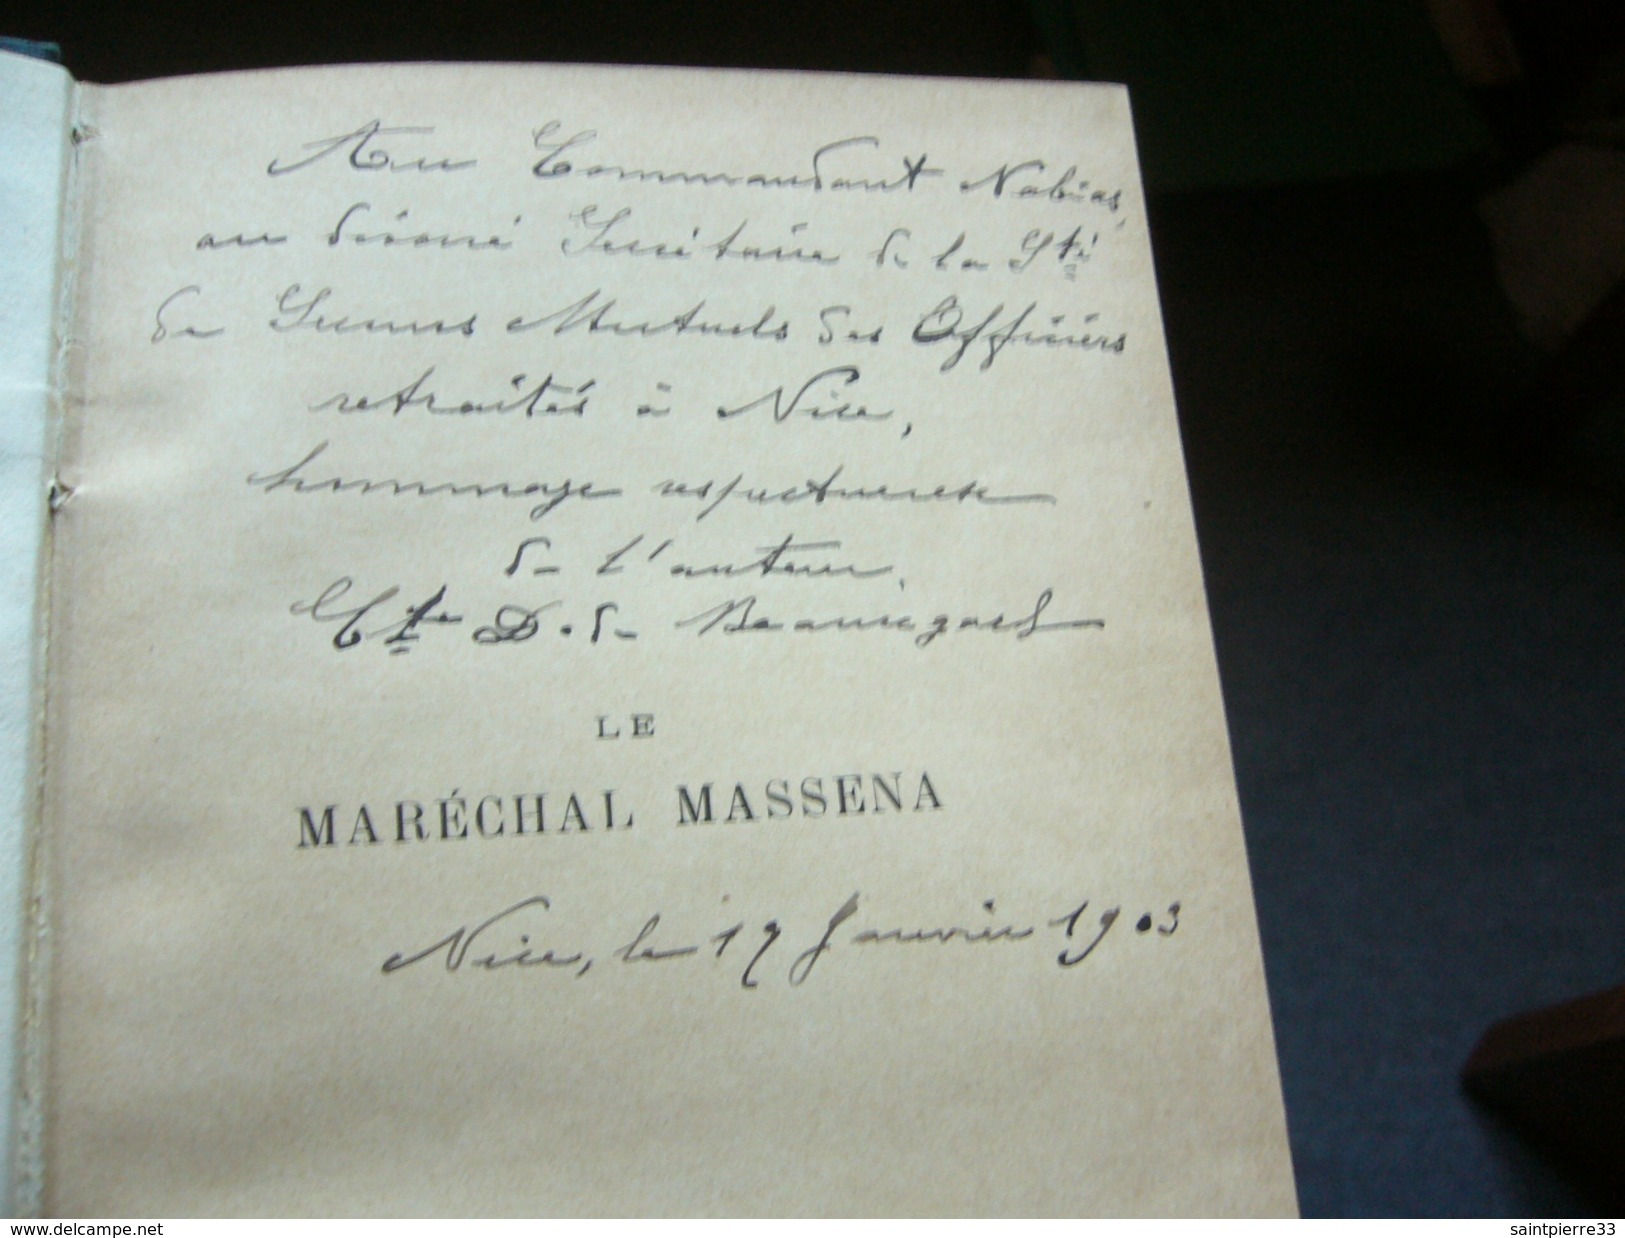 Au Commandant Nabias,
au dévoué Secrétaire de la Sté
de Secours Mutuels des Officiers
retraités à Nice,
hommage respectueux
de l'auteur.
Cte D. de Beauregard
LE
MARÉCHAL MASSENA
Nice, le 17 Janvier 1903
www.delcampe.net
saintpierre33